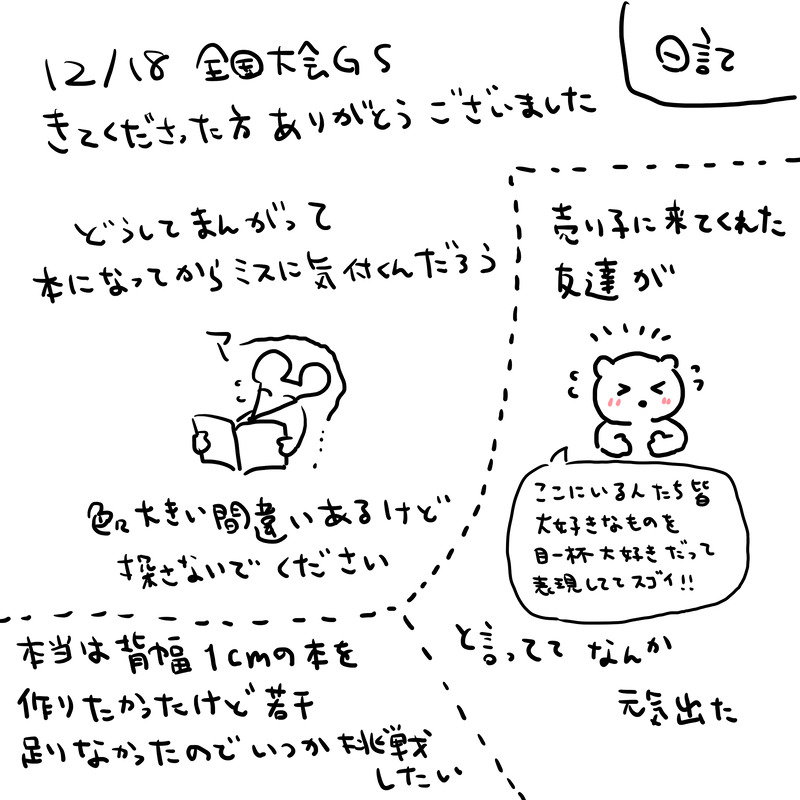 日記
12/18 全国大会GS
きてくださった方 ありがとうございました
どうしてまんがって
本になってからミスに気付くんだろう
ア
色々大きい間違いあるけど
探さないでください
売り子に来てくれた
友達が
ここにいるんたち皆
大好きなものを
目一杯大好きだって
表現しててスゴイ!!
と言ってて なんか
元気出た
本当は背幅1cmの本を
作りたかったけど若干
足りなかったのでいつか挑戦
したい